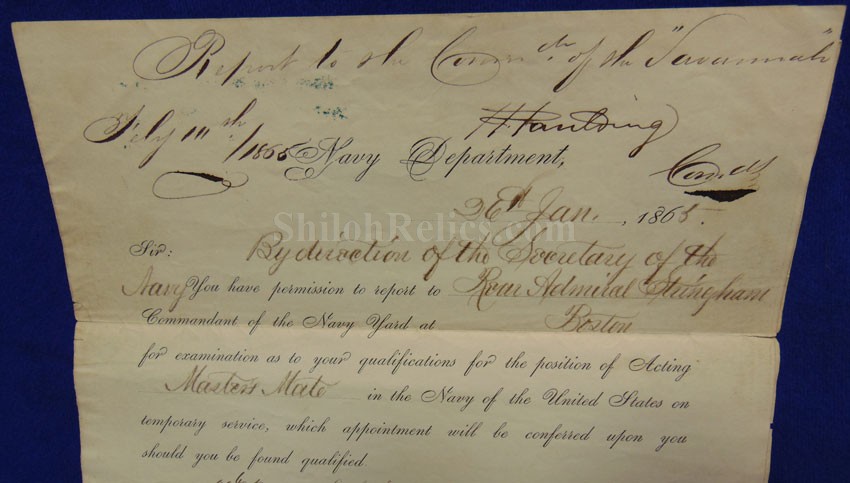 Report to the Comdt of the "Savannah"
H Paulding
Feby 11th/1865
Comdt
Navy Department,
26th Jan., 1865.
ShilohRelics.com
Sir: By direction of the Secretary of the
Navy You have permission to report to Rear Admiral Stringham
Commandant of the Navy Yard at Boston
for examination as to your qualifications for the position of Acting
Masters Mate in the Navy of the United States on
temporary service, which appointment will be conferred upon you
should you be found qualified.